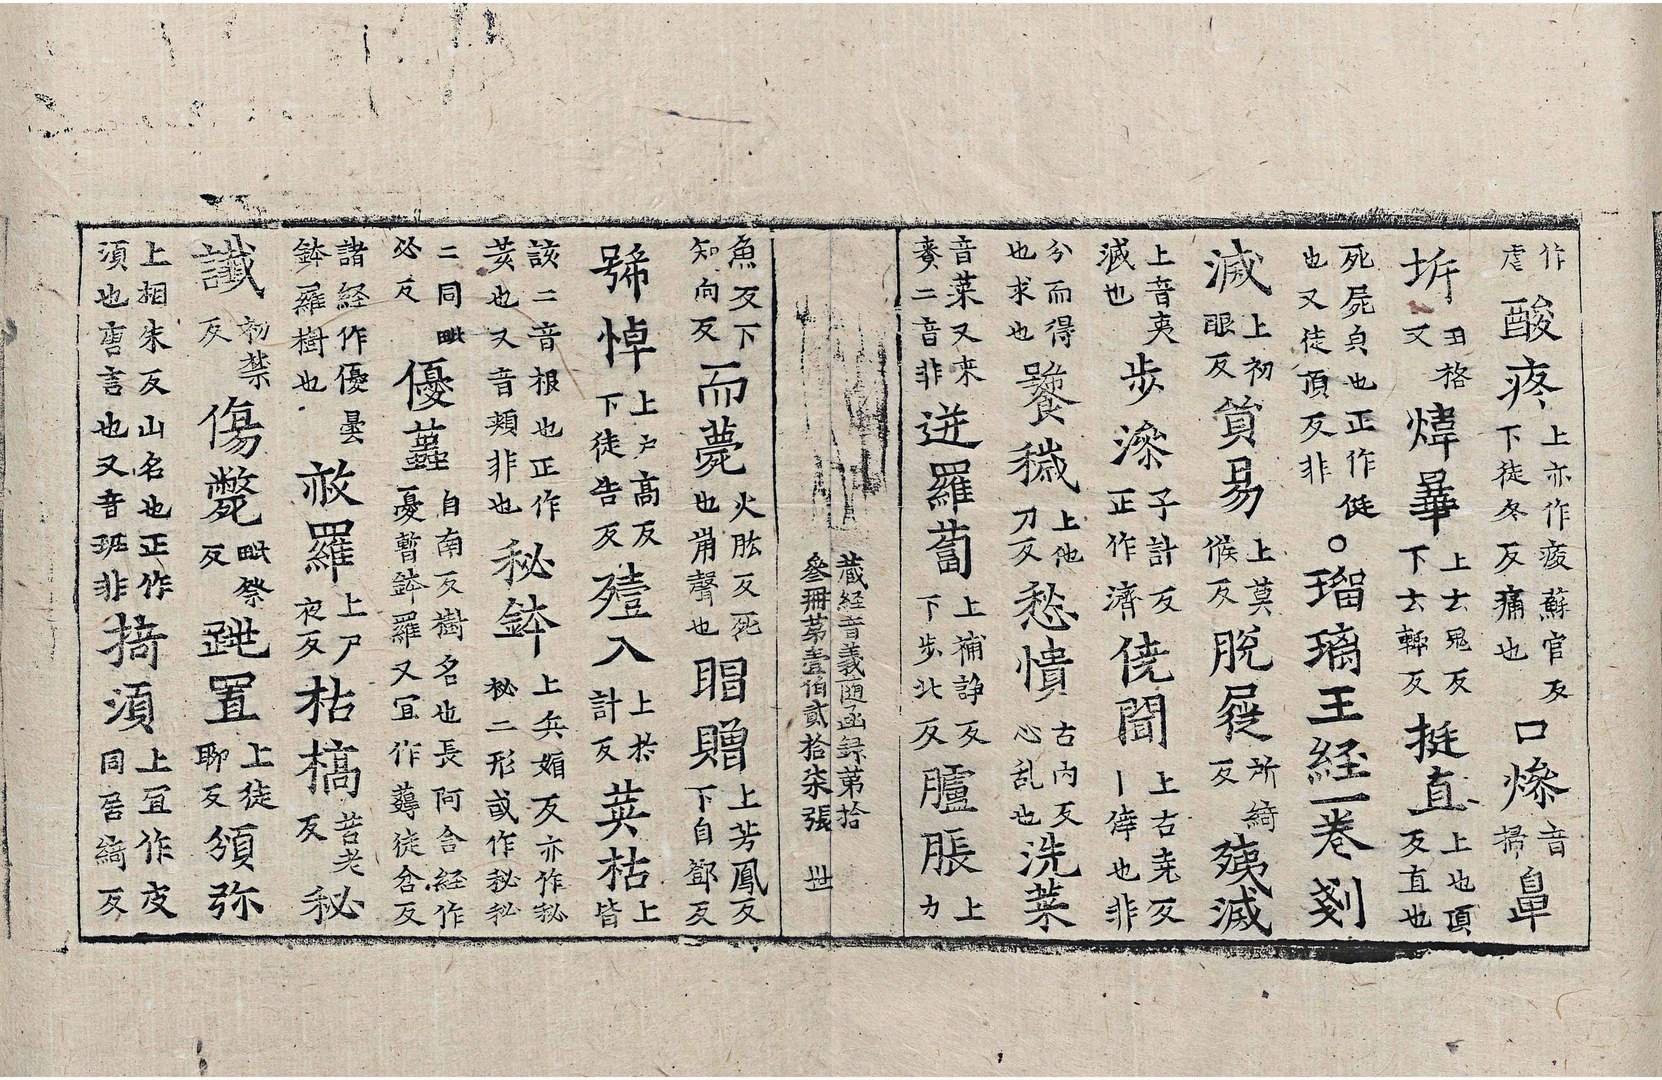 作虐酸疼上亦作痠蘇官反下徒冬反痛也口燥音掃鼻
坼丑格反又煒曅上于鬼反下于輒反挺直上也頂反直也
死屍貞也正作侹也又徒頂反非○瑠璃王経一卷剗
滅上初眼反貿易上莫候反脫屣所綺反殘滅
上音夷滅也步渧子計反正作濟侥聞上古尭反丨倖也非
分而得也求也饕穢上他刀反愁憒古内反心乱也洗菜
音菜又来賚二音非迸羅蔔上補諍反下步北反臚脹上力
藏経音義随函録第拾
參冊第壹伯貳拾柒張 世
魚反下知向反而薨火肱反死也甍聲也賵贈上芳鳳反下自鄧反
號悼上戶髙反下徒告反殪入上於計反荄枯上皆
該二音根也正作荄也又音頬非也秘鉢上兵媚反亦作秘秘二形或作秘秘
二同毗必反優蕋自南反樹名也長阿含経作憂暫鉢羅又冝作蕁徒含反
諸経作優曇鉢羅樹也赦羅上尸夜反枯槁苦老反秘
讖初禁反傷斃毗祭反跳置上徒聊反須弥
上相朱反山名也正作湏也唐言也又音班非掎湏上冝作皮同居綺反